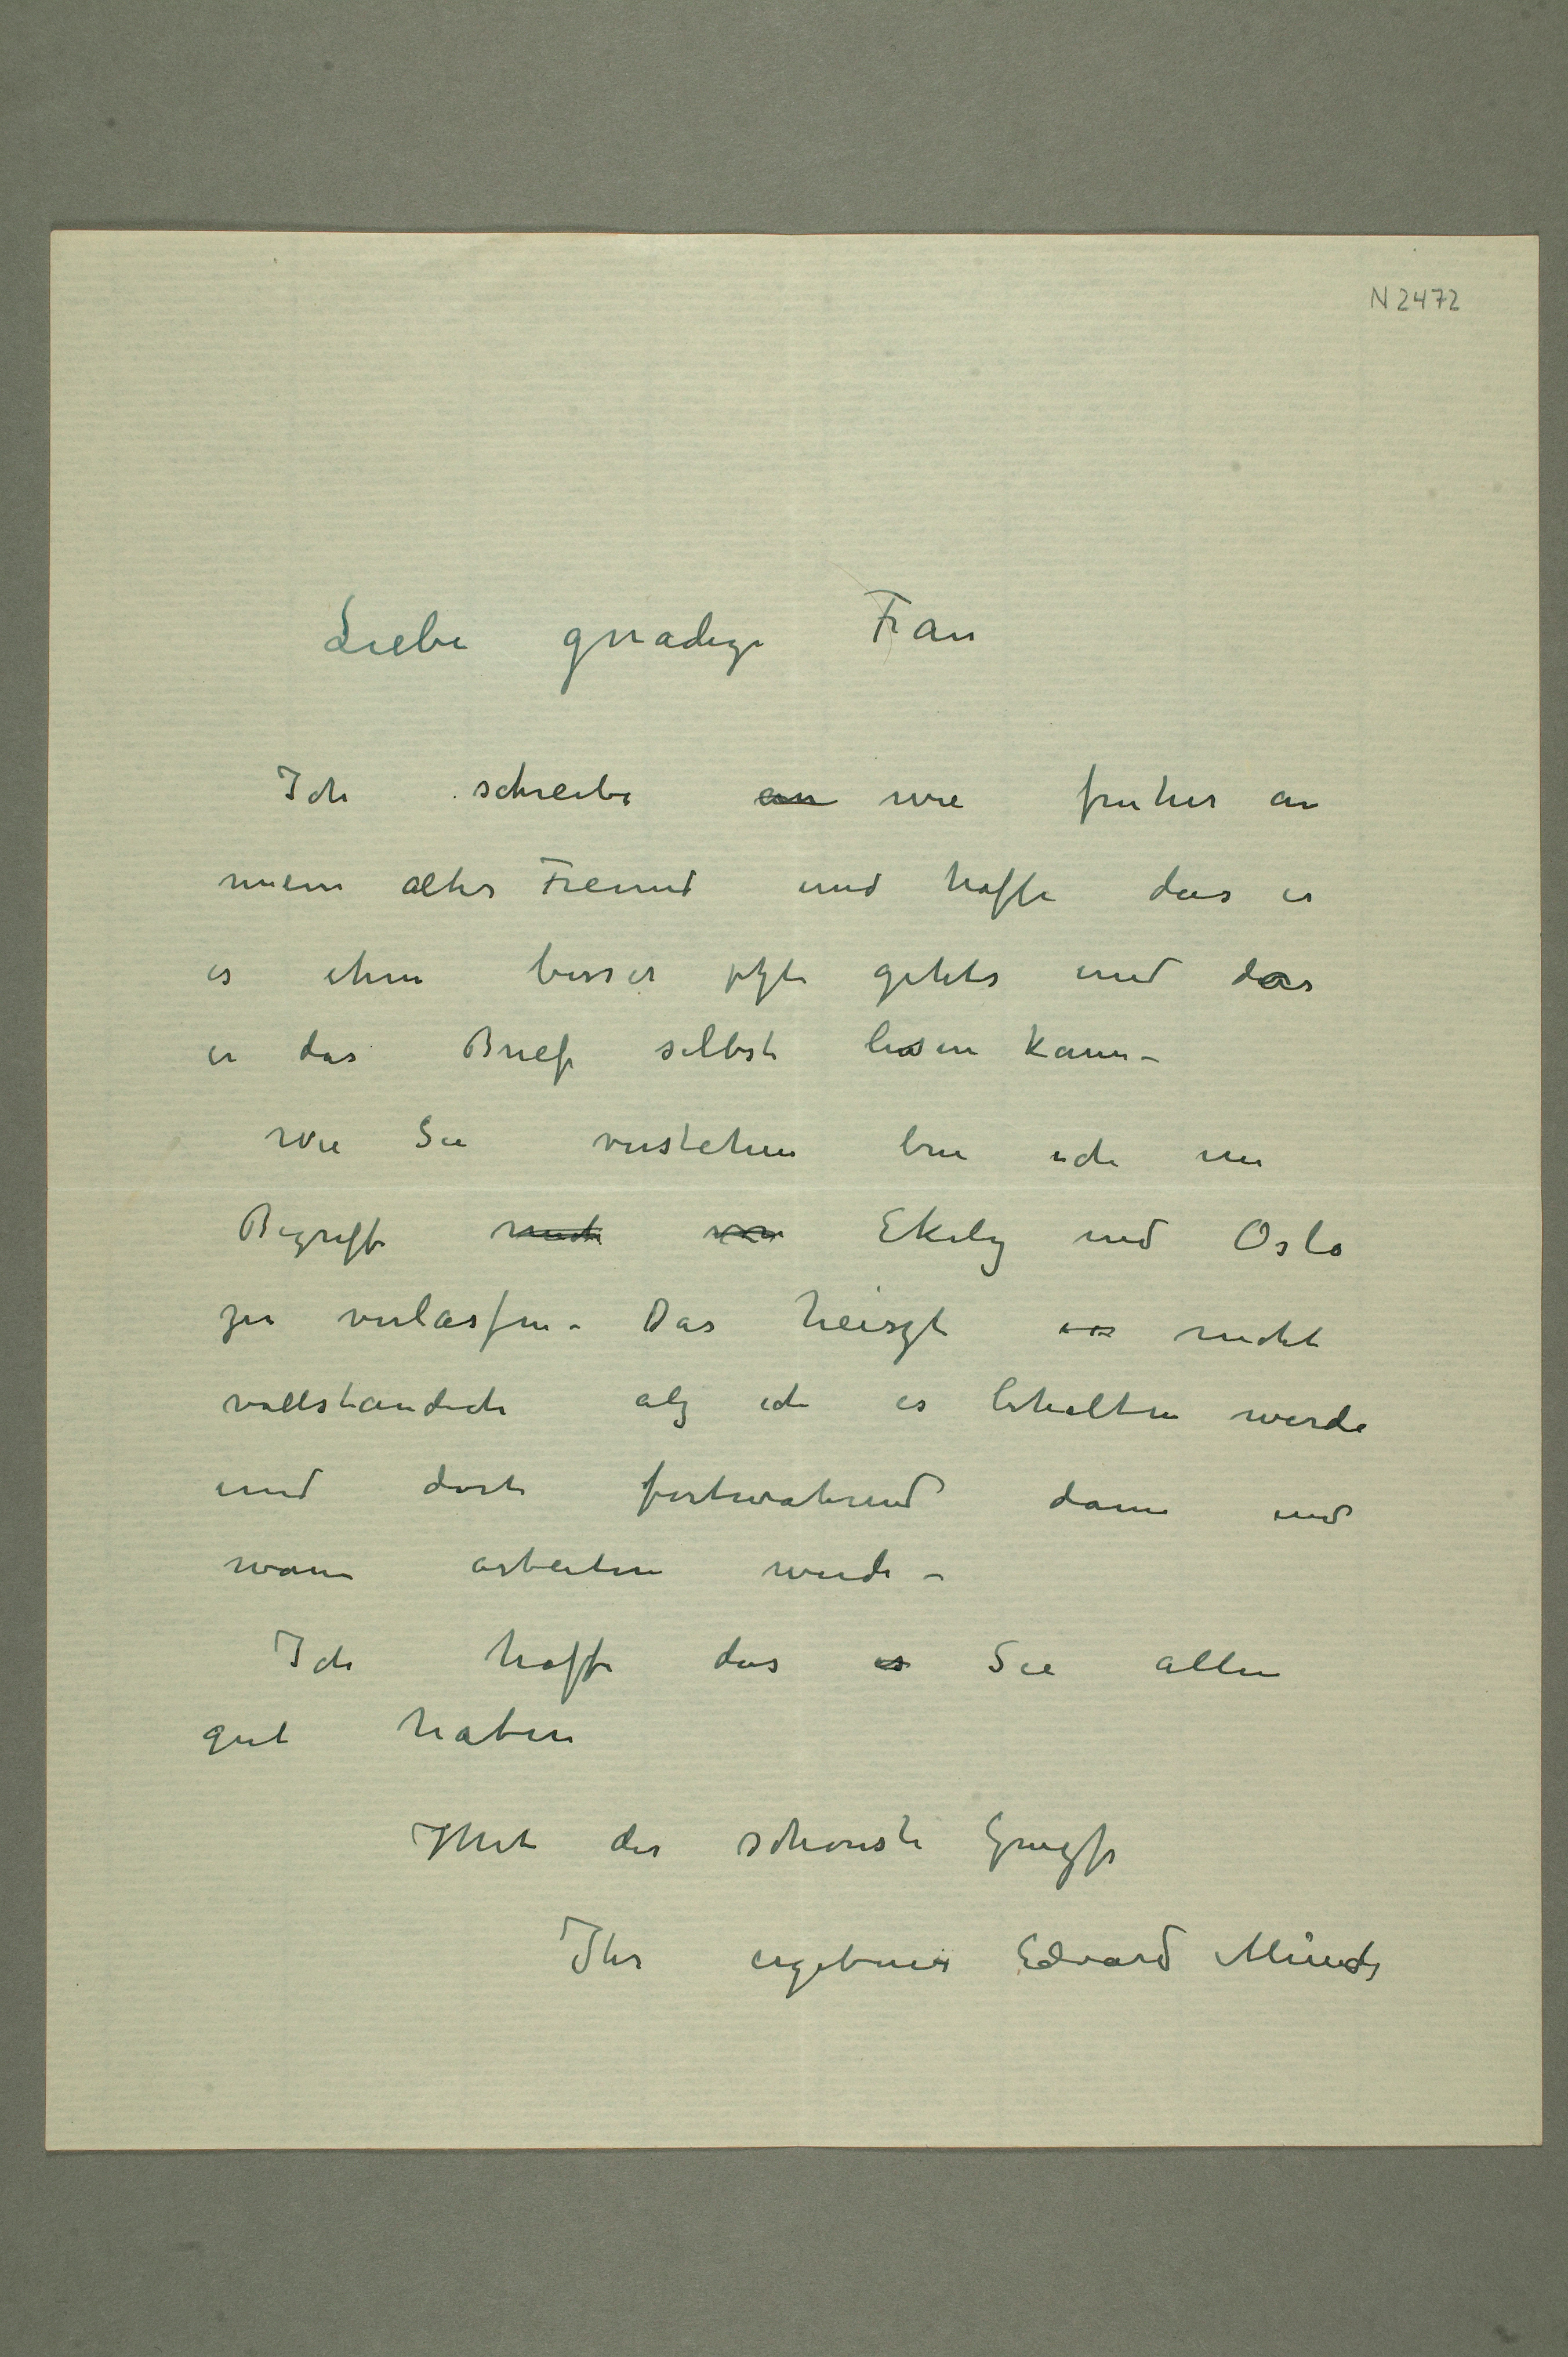 N 2472
Liebe gnadige Frau
Ich schreibe an wie früher an
mein alter Freund und hoffe das es
es ihm besser jetzt gehts und das
er das Brief selbst lesen kann –
Wie Sie verstehen bin ich im
Begriff mich von Ekely und Oslo
zu verlassen – Das heiszt es nicht
vollstandich als ich es behalten werde
und dort fortwahrend dann und
wann arbeiten werde –
Ich hoffe das es Sie allen
gut haben
Mit der schonste Grusse
Ihr ergebener Edvard Munch